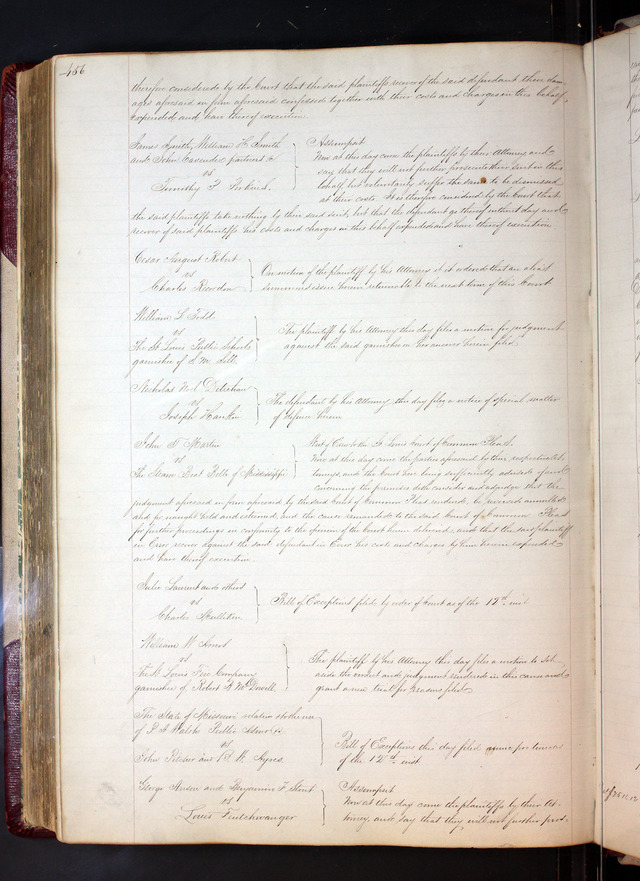 456
therefore considered by the Court that the said plaintiffs recover of the said defendant their dam-
ages aforesaid in form aforesaid confessed together with their costs and charges in this behalf
expended, and have thereof execution
James Smith, William H. Smith
and John Cavender partners &
vs
Timothy P.
Assumpsit
Now at this day come the plaintiffs by their Attorney, and
say that they will not further prosecute their suit in this
behalf, but voluntarily suffer the same to be dismissed
at their costs. It is therefore considered by the Court that
the said plaintiffs take nothing by their said suit, but that the defendant go thereof without day and
recover of said plaintiffs his costs and charges in this behalf expended and have thereof execution
Cesar August Robert
vs
Charles Riordon
On motion of the plaintiff by his Attorney it is ordered that an alias
summons issue herein returnable to the next term of this Court
William L.
vs
The St Louis Public Schools
garnishee of
The plaintiff by his Attorney this day files a motion for judgment
against the said garnishee on her answer herein filed.
Nicholas N.
vs
Joseph Hankin
The defendant by his Attorney this day files a notice of special matter
of defence herein
John D. Martin
vs
The Steam Boat Belle of Mississippi
Writ of Error to the St. Louis Court of Common Pleas.
Now at this day come the parties aforesaid by their respective At-
torneys, and the Court now being sufficiently advised of and
concerning the premises doth consider and adjudge that the
judgment aforesaid in form aforesaid by the said Court of Common Pleas rendered, be reversed annulled
and for naught held and esteemed, and the cause remanded to the said Court of Common Pleas
for further proceedings in conformity to the opinion of the Court herein delivered; and that the said plaintiff
in Error recover against the said defendant in Error his costs and charges by him herein expended
and have thereof execution.
Jules Laurent and others
vs
Charles Mullikin
Bill of Exceptions filed by order of Court as of the 12th inst
William W.
vs
The St. Louis Fire Company
garnishee of Robert A. McDowell
The plaintiff by his Attorney this day files a motion to set
aside the verdict and judgment rendered in this cause and
grant a new trial for reasons filed.
The State of Missouri relation &c
of P A Walsh Public Admr &c
vs
John Pilcher and B. W. Ayres
Bill of Exceptions this day filed nunc pro tunc as
of the 12th inst
George and Benjamin F. Stout
vs
Louis Feuchtwanger
Assumpsit
Now at this day come the plaintiffs by their At-
torney, and say that they will not further pros-